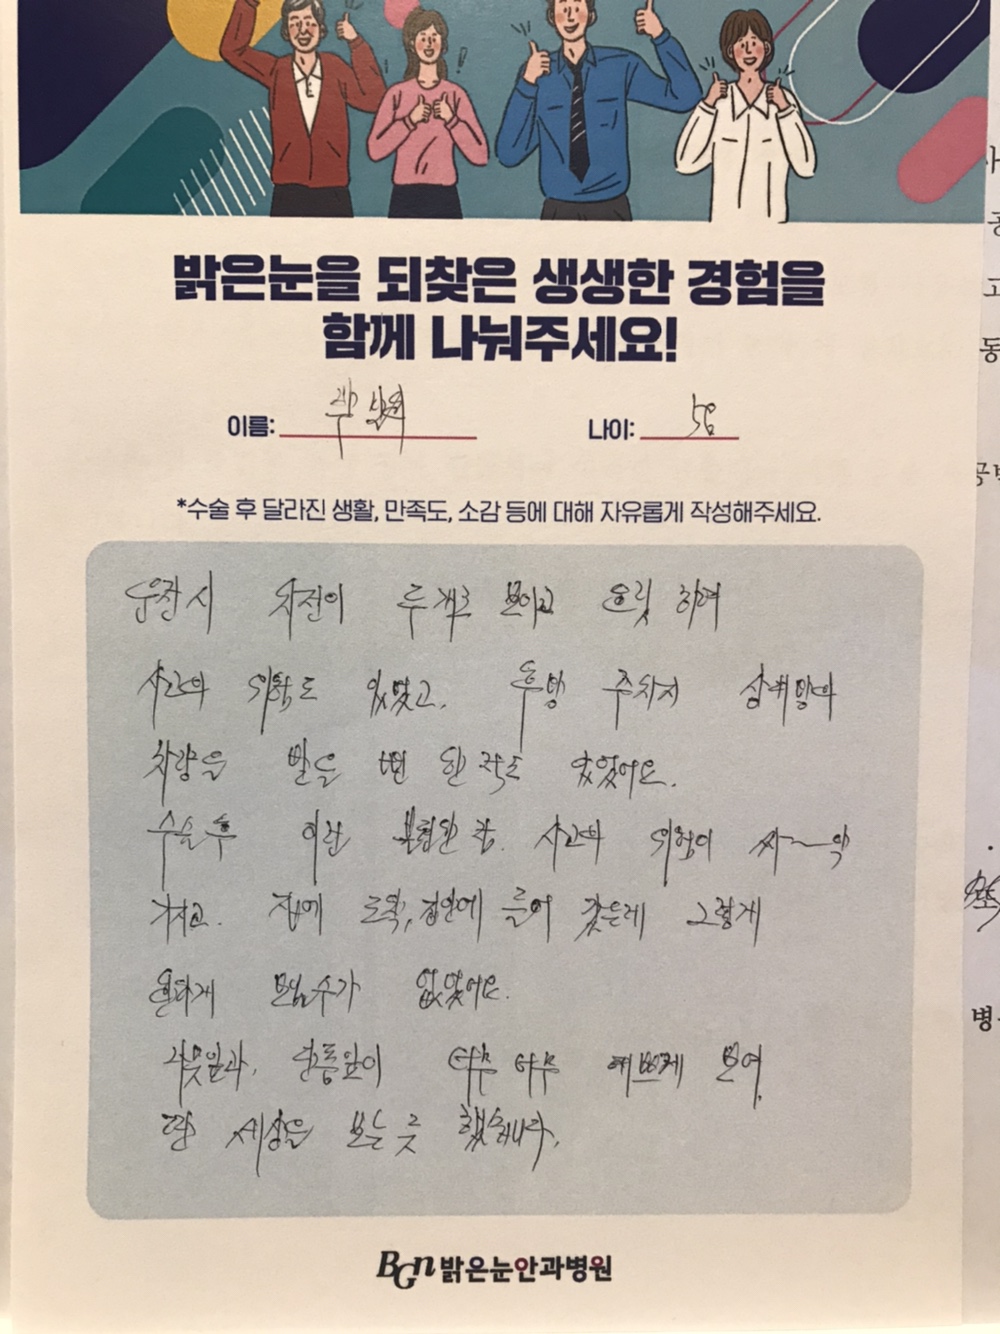 밝은눈을 되찾은 생생한 경험을
함께 나눠주세요!
이름:
나이: 58
*수술 후 달라진 생활, 만족도, 소감 등에 대해 자유롭게 작성해주세요.
운전시 차선이 두개로 보이고 흐릿 하여
사고의 위험도 있었고, 후방 주차시 상대방의
차량을 받을 뻔 한 적도 있었어요.
수술 후 이런 불편한 점, 사고의 위험이 싸~악
가시고. 집에 도착, 집안에 들어 갔는데 그렇게
환하게 보일 수가 없었어요.
나뭇잎과, 단풍잎이 너무 너무 예쁘게 보여,
딴 세상을 보는 듯 했습니다.
BGn 밝은눈안과병원